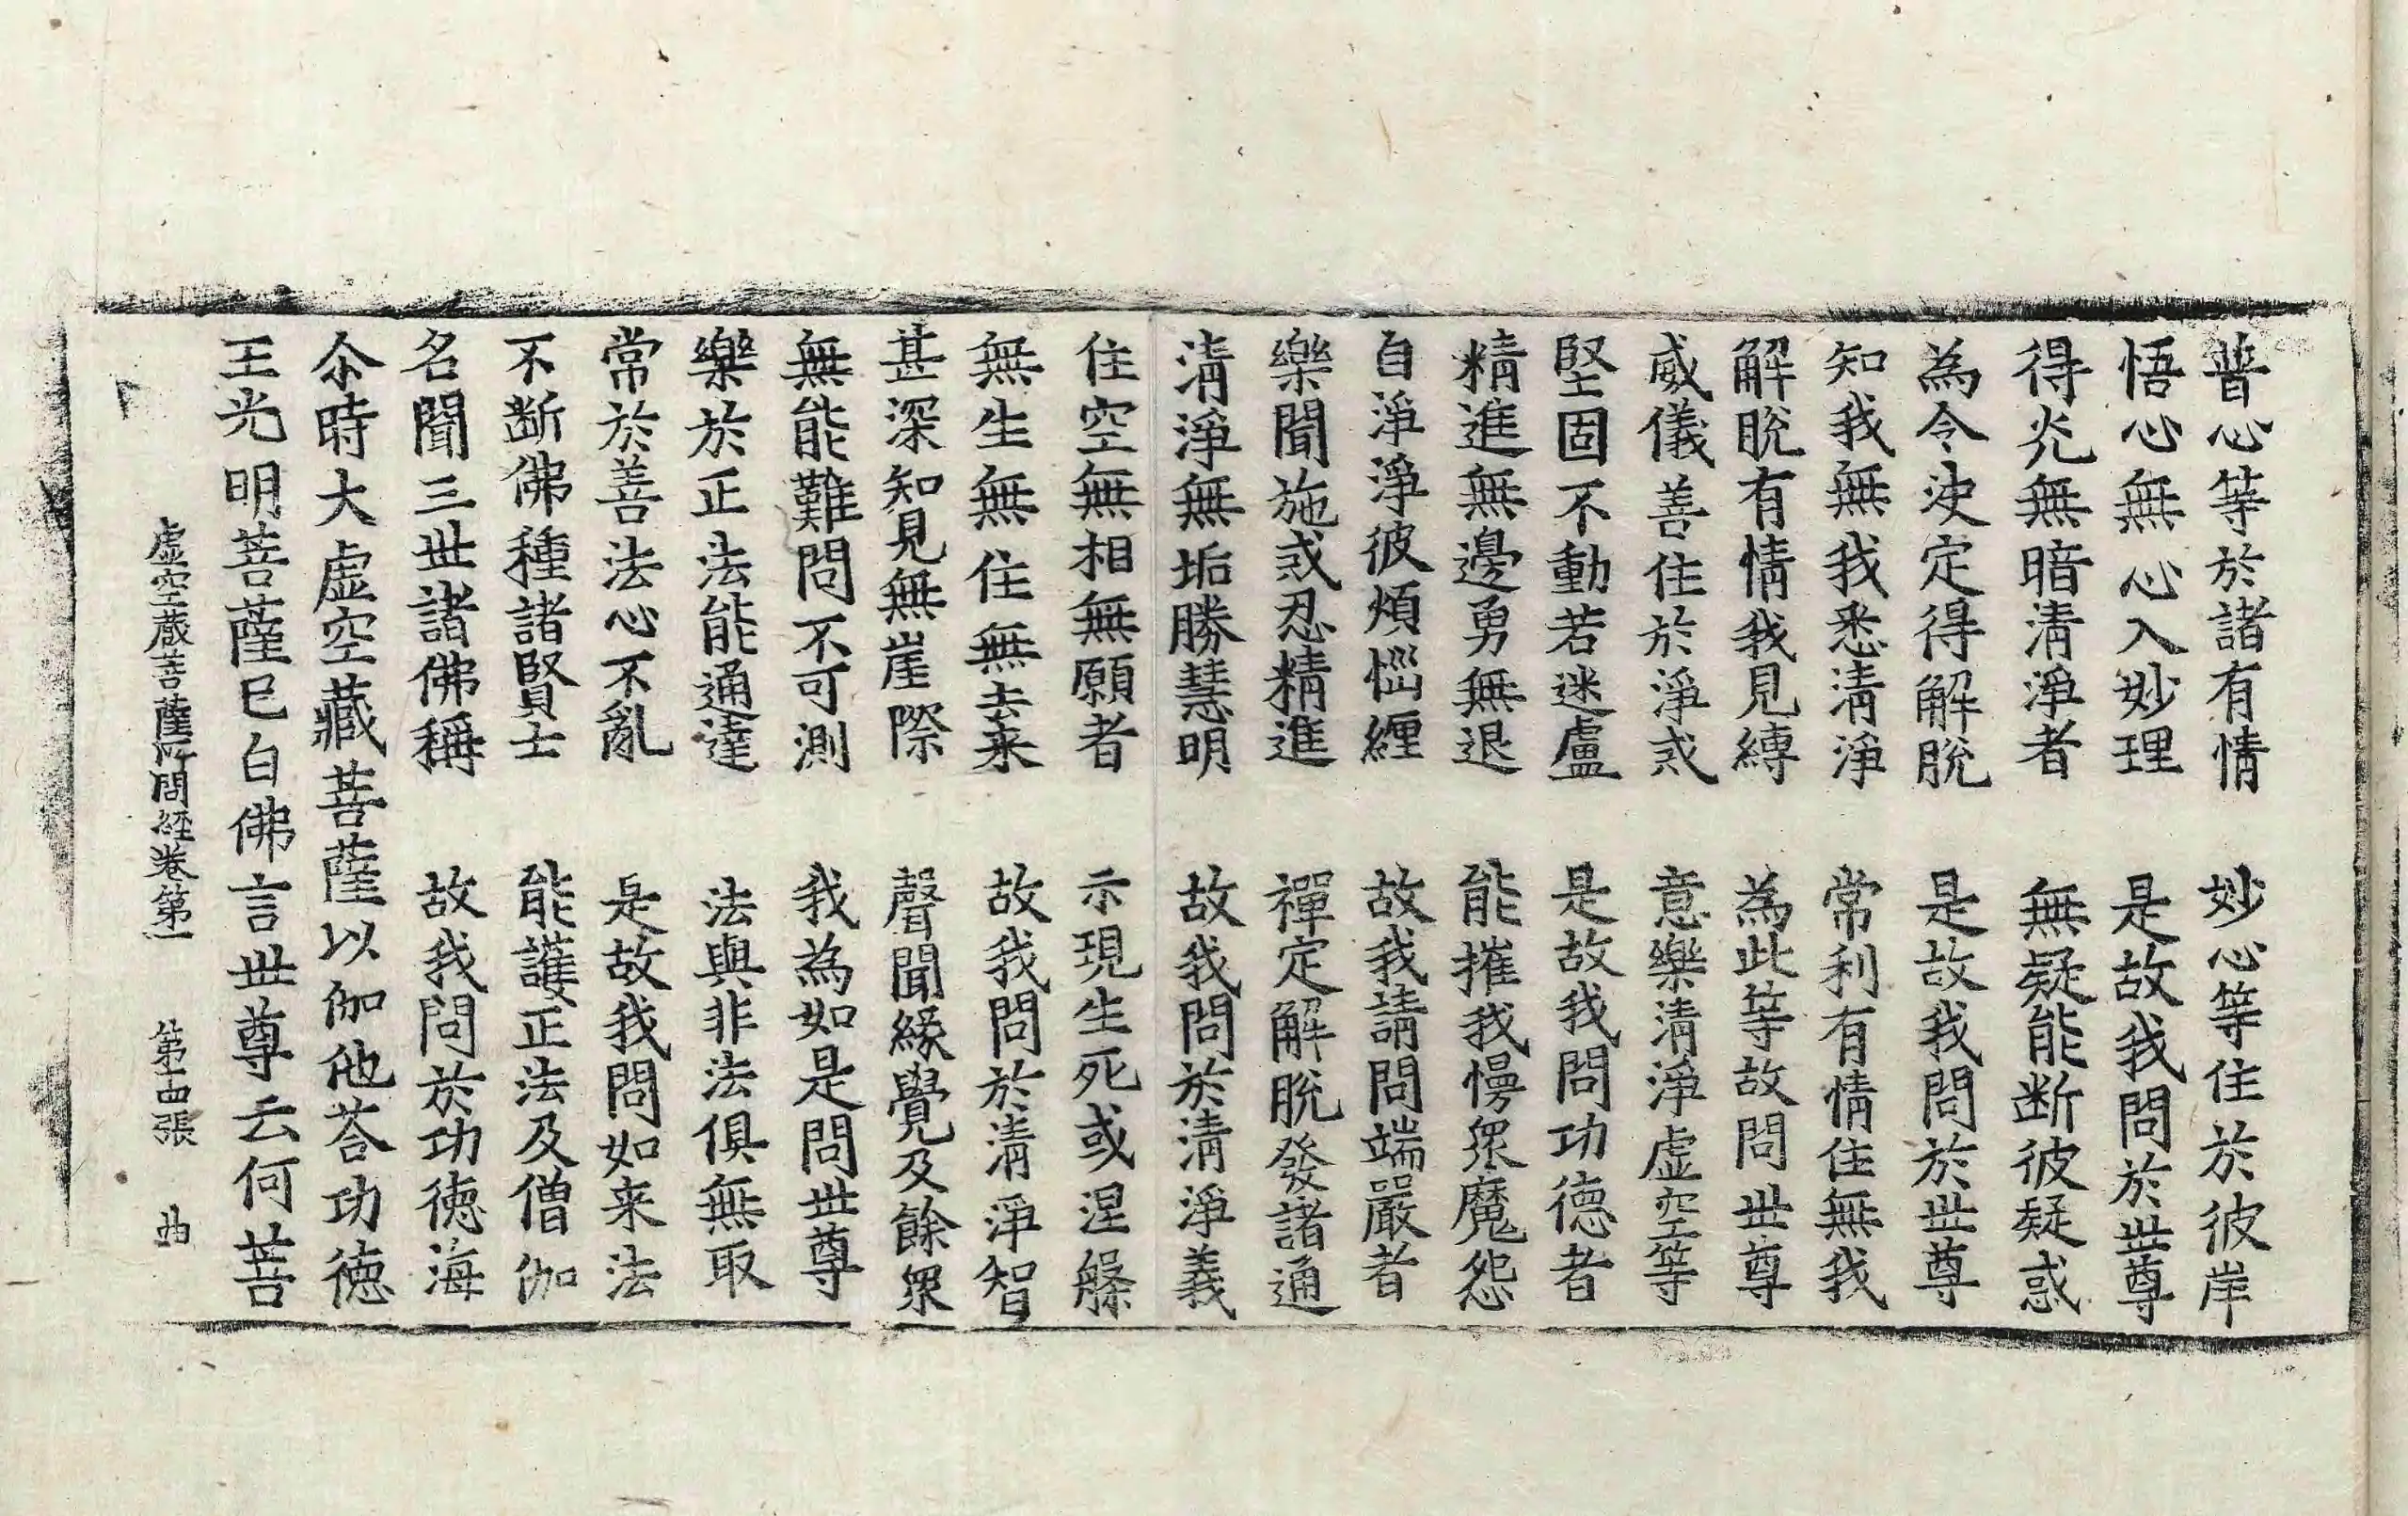 普心等於諸有情　妙心等住於彼岸
悟心無心入妙理　是故我問於世尊
得光無暗清淨者　無疑能断彼疑惑
為令決定得解脫　是故我問於世尊
知我無我悉清淨　常利有情住無我
解脫有情我見縛　為此等故問世尊
威儀善住於淨戒　意樂清淨虛空等
堅固不動若迷盧　是故我問功德者
精進無邊勇無退　能摧我慢衆魔怨
自淨淨彼煩惱纏　故我請問端嚴者
樂聞施戒忍精進　禪定解脫發諸通
清淨無垢勝慧明　故我問於清淨義
住空無相無願者　示現生死或涅槃
無生無住無去来　故我問於清淨智
甚深知見無崖際　聲聞緣覺及餘衆
無能難問不可測　我為如是問世尊
樂於正法能通達　法與非法俱無取
常於善法心不亂　是故我問如来法
不断佛種諸賢士　能護正法及僧伽
名聞三世諸佛稱　故我問於功德海
尒時大虛空藏菩薩以伽他荅功德
王光明菩薩已白佛言世尊云何菩
虛空藏菩薩所問經卷第一　第十四張